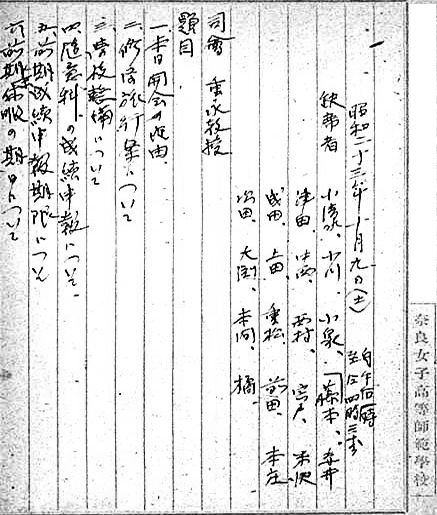 昭和二十三年十月九日(土)
自午后一時
至仝四時三十分
欠席者 小清水、小川、小泉、藤本、
津田、中西、西村、宍戸、
成田、上田、重松、前田、本庄
池田、大園、本間、橘、
司会 重永教授
題目
一、本日開会の理由、
二、修学旅行案について
三、学校整備について
四、随意科の成績申報について、
五、前期成績申報期限について
六、前期休暇の期日について
奈良女子高等師範學校